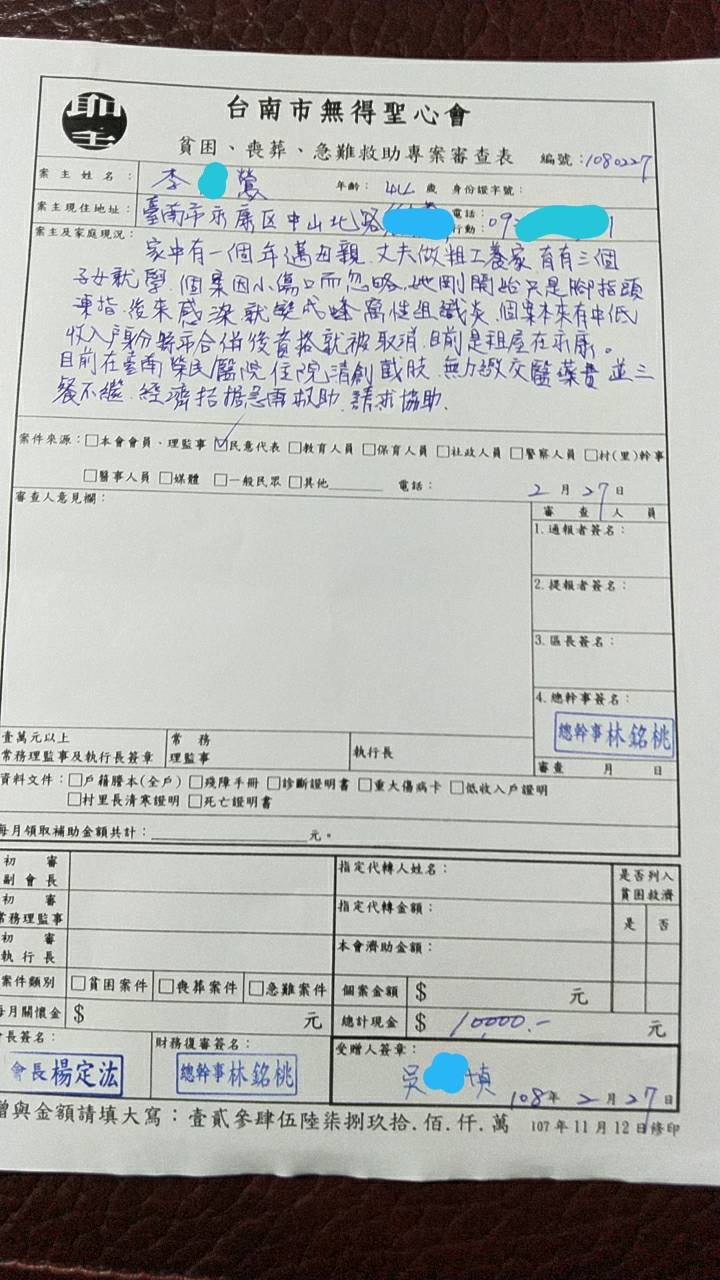 聖
台南市無得聖心會
貧困、喪葬、急難救助專案審查表 編號:1080227
案主姓名: 李 鶯 年齡: 44 歲 身份證字號:
案主現住地址: 臺南市永康区中山北路 電話:
行動: 09 1
案主及家庭現況:
家中有一個年邁母親.丈夫做粗工養家.育有三個
子女就學.個案因小傷口而忽略.她剛開始只是腳指頭
凍指.後來感染就變成蜂窩性組織炎.個案本來有中低
收入戶身份縣市合併後資格就被取消.目前是租屋在永康。
目前在臺南榮民醫院住院清創截肢.無力繳交醫藥費並三
餐不繼.經濟拮据急需救助.請求協助.
案件來源:□本會會員、理監事 ☑民意代表 □教育人員 □保育人員 □社政人員 □警察人員 □村(里)幹事
□醫事人員 □媒體 □一般民眾 □其他________ 電話: 2月27日
審查人意見欄:
審查人員
1.通報者簽名:
2.提報者簽名:
3.區長簽名:
4.總幹事簽名:
總幹事林銘桃
審查 月 日
壹萬元以上
常務理監事及執行長簽章
常務
理監事
執行長
資料文件:□戶籍謄本(全戶) □殘障手冊 □診斷證明書 □重大傷病卡 □低收入戶證明
□村里長清寒證明 □死亡證明書
每月領取補助金額共計:____________________元。
初審
副會長
初審
常務理監事
初審
執行長
指定代轉人姓名:
指定代轉金額:
本會濟助金額:
是否列入
貧困救濟
是 否
案件類別 □貧困案件 □喪葬案件 □急難案件 個案金額 $ 元
每月關懷金 $ 元 總計現金 $ 10,000.- 元
會長簽名:
會長楊定汯
財務復審簽名:
總幹事林銘桃
受贈人簽章:
吳 慎
108年2月27日
贈與金額請填大寫:壹貳參肆伍陸柒捌玖拾.佰.仟.萬 107年11月12日修印